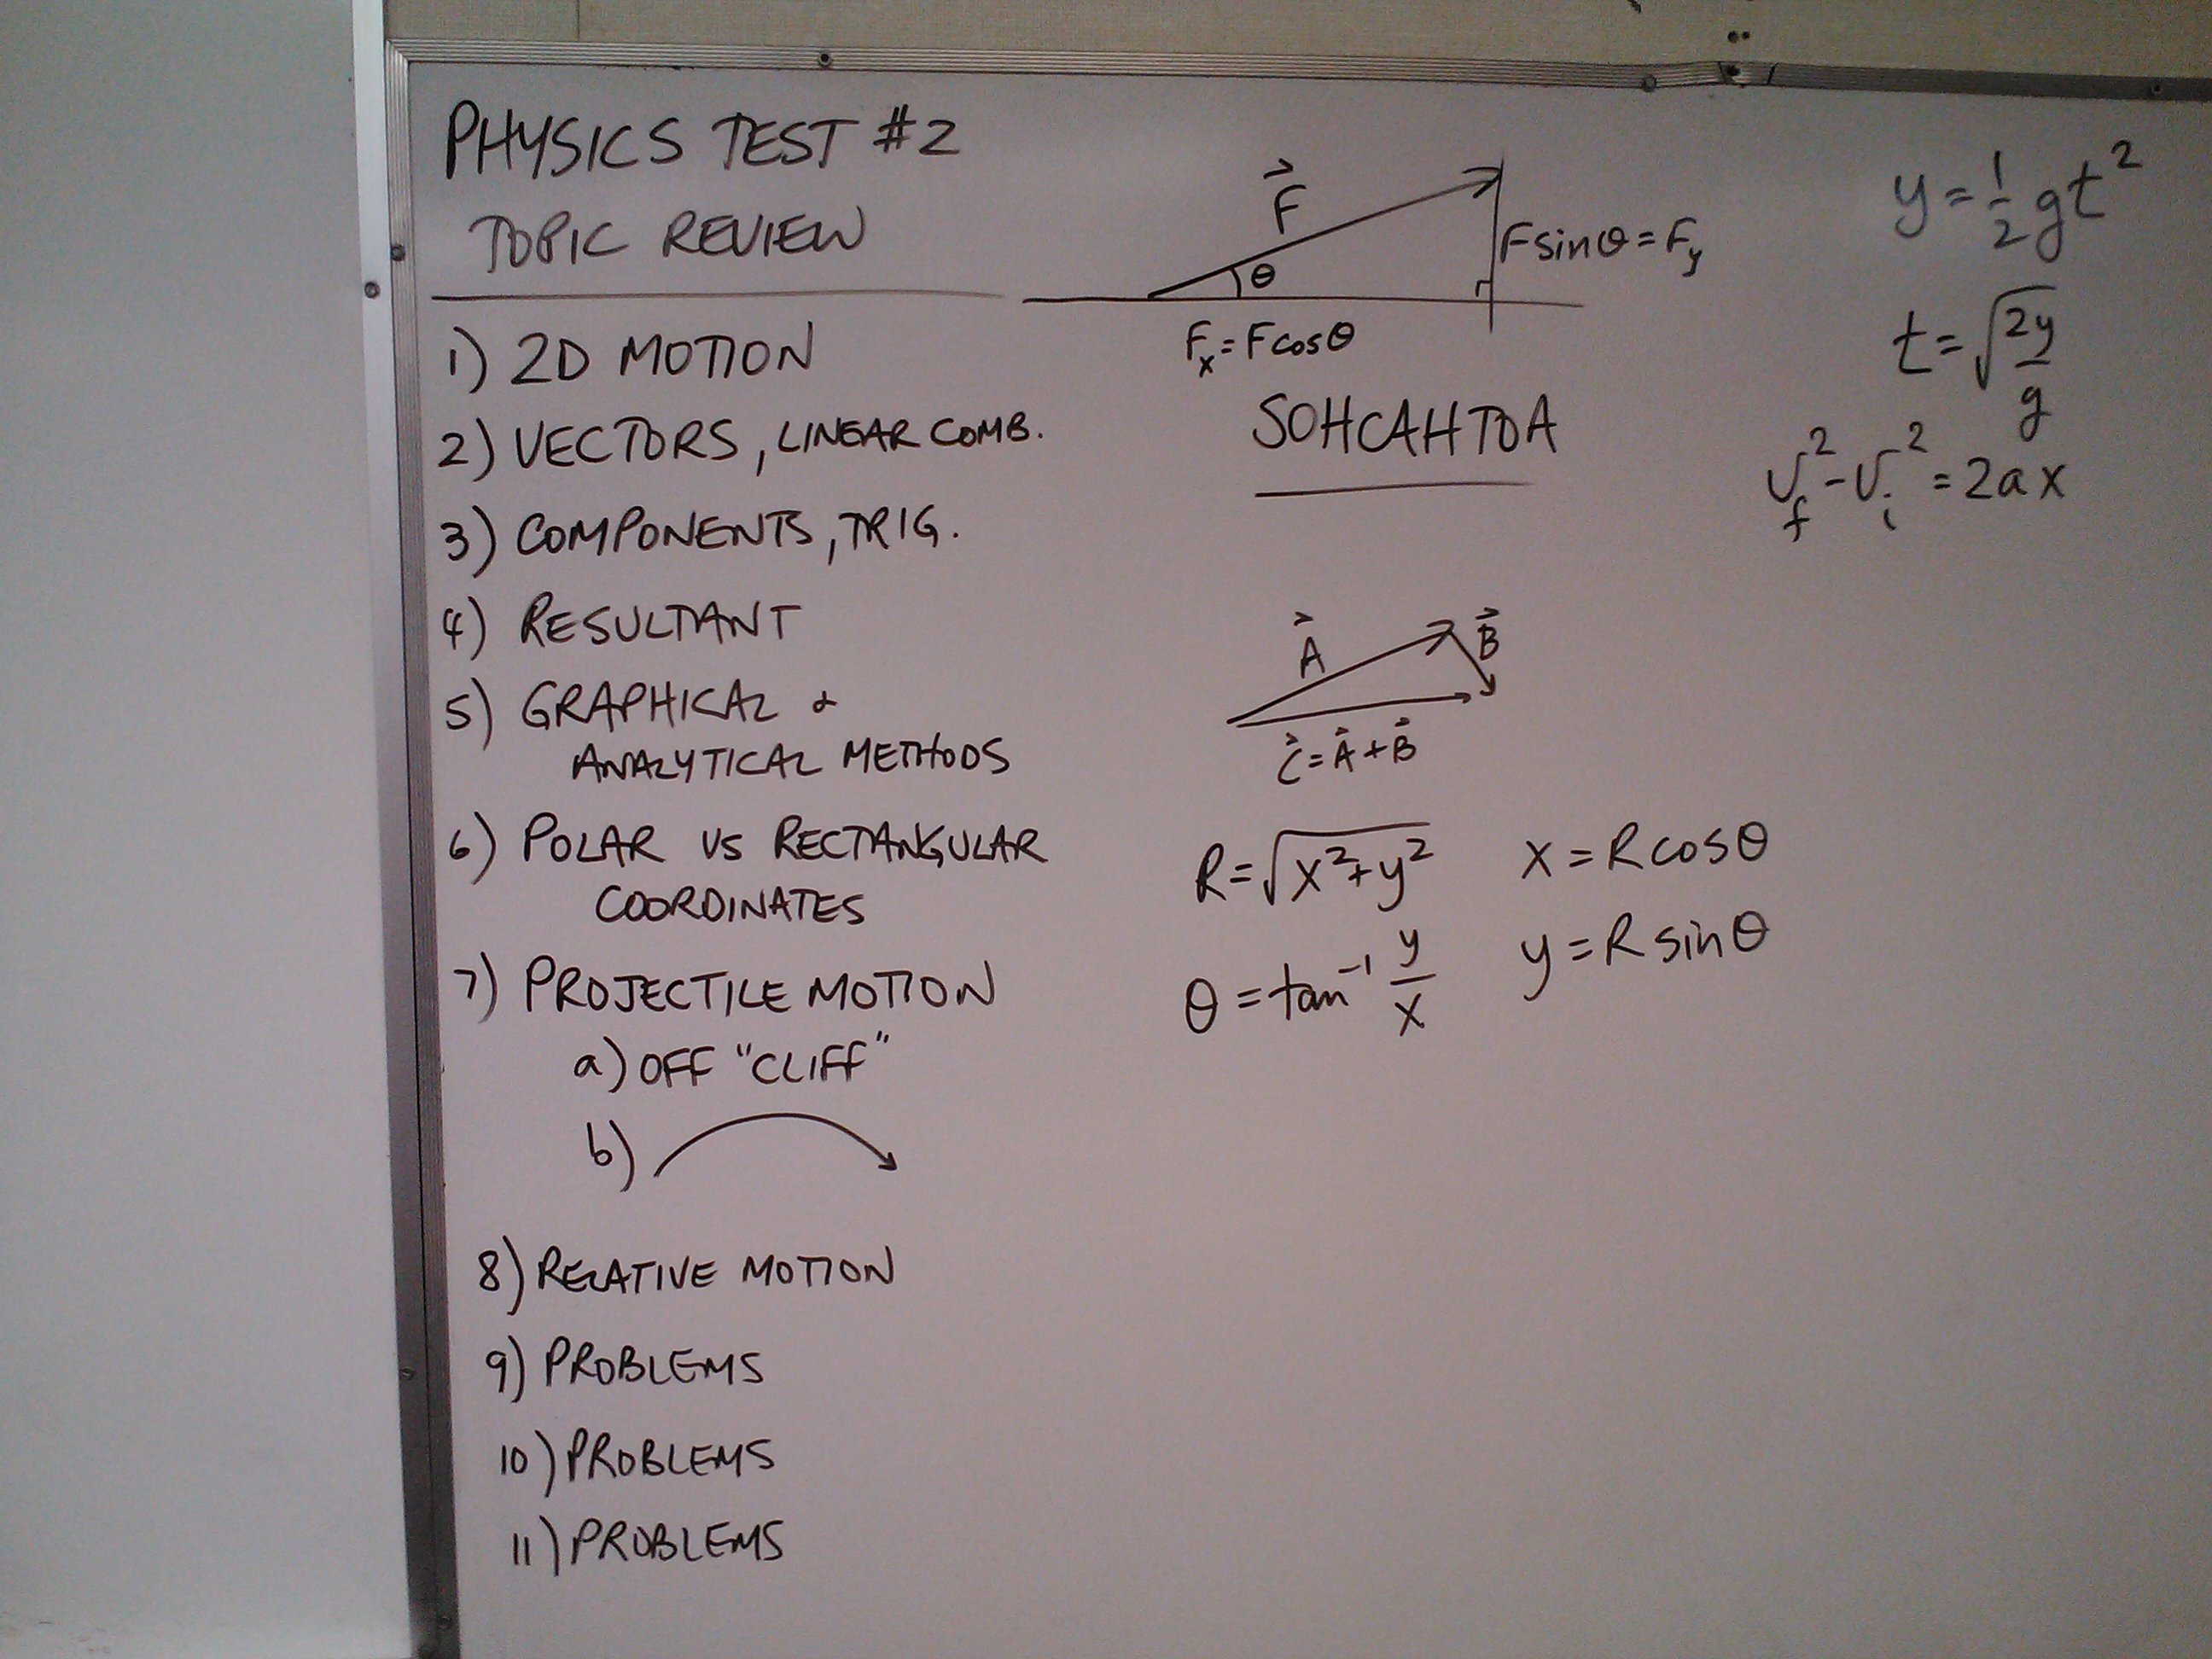 PHYSICS TEST #2
TOPIC REVIEW
1) 2D MOTION
2) VECTORS, LINEAR COMB.
3) COMPONENTS, TRIG.
4) RESULTANT
5) GRAPHICAL &
ANALYTICAL METHODS
6) POLAR VS RECTANGULAR
COORDINATES
7) PROJECTILE MOTION
a) OFF "CLIFF"
b)
8) RELATIVE MOTION
9) PROBLEMS
10) PROBLEMS
11) PROBLEMS
F⃗
θ
Fsinθ = F_y
F_x = Fcosθ
SOHCAHTOA
A⃗
B⃗
C⃗ = A⃗ + B⃗
R = √(x² + y²)
x = Rcosθ
θ = tan⁻¹ y/x
y = Rsinθ
y = 1/2 gt²
t = √(2y/g)
v_f² - v_i² = 2ax